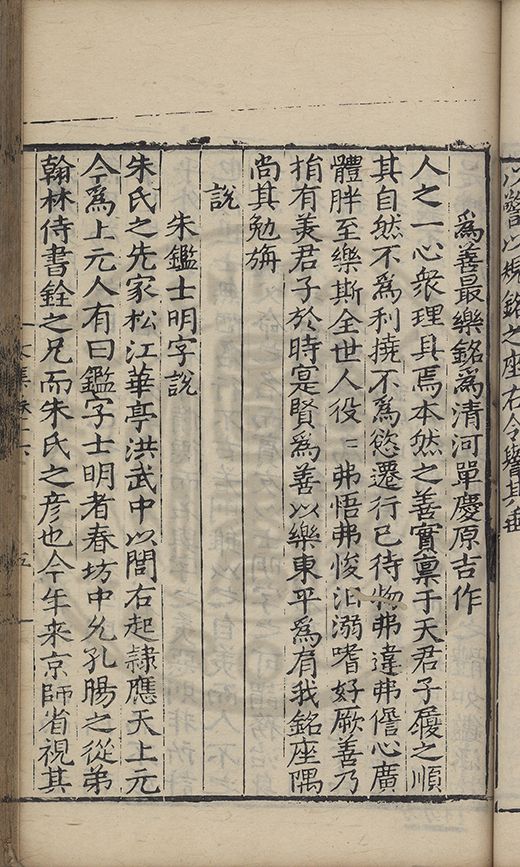 以警以規銘之座右令譽其垂
爲善最樂銘爲清河單慶原吉作
人之一心衆理具焉本然之善實稟于天君子履之順
其自然不爲利撓不爲慾遷行已待物弗違弗僭心廣
體胖至樂斯全世人役〻弗悟弗悛汨溺嗜好厥善乃
捐有美君子於時寔賢爲善以樂東平爲有我銘座隅
尚其勉旃
說
朱鑑士明字說
朱氏之先家松江華亭洪武中以閭右起隷應天上元
今爲上元人有曰鑑字士明者春坊中允孔腸之從弟
翰林侍書銓之兄而朱氏之彦也今年來京師省視其